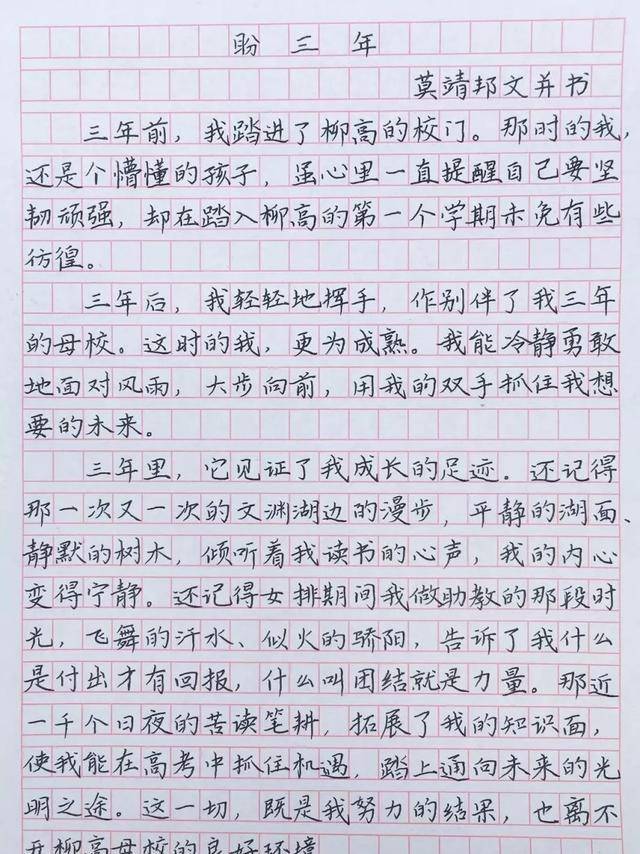 盼三年
莫靖邦文并书
三年前，我踏进了柳高的校门。那时的我，
还是个懵懂的孩子，虽心里一直提醒自己要坚
韧顽强，却在踏入柳高的第一个学期未免有些
彷徨。
三年后，我轻轻地挥手，作别伴了我三年
的母校。这时的我，更为成熟。我能冷静勇敢
地面对风雨，大步向前，用我的双手抓住我想
要的未来。
三年里，它见证了我成长的足迹。还记得
那一次又一次的文渊湖边的漫步，平静的湖面、
静默的树木，倾听着我读书的心声，我的内心
变得宁静。还记得女排期间我做助教的那段时
光，飞舞的汗水、似火的骄阳，告诉了我什么
是付出才有回报，什么叫团结就是力量。那近
一千个日夜的苦读笔耕，拓展了我的知识面，
使我能在高考中抓住机遇，踏上通向未来的光
明之途。这一切，既是我努力的结果，也离不
开柳高母校的良好环境